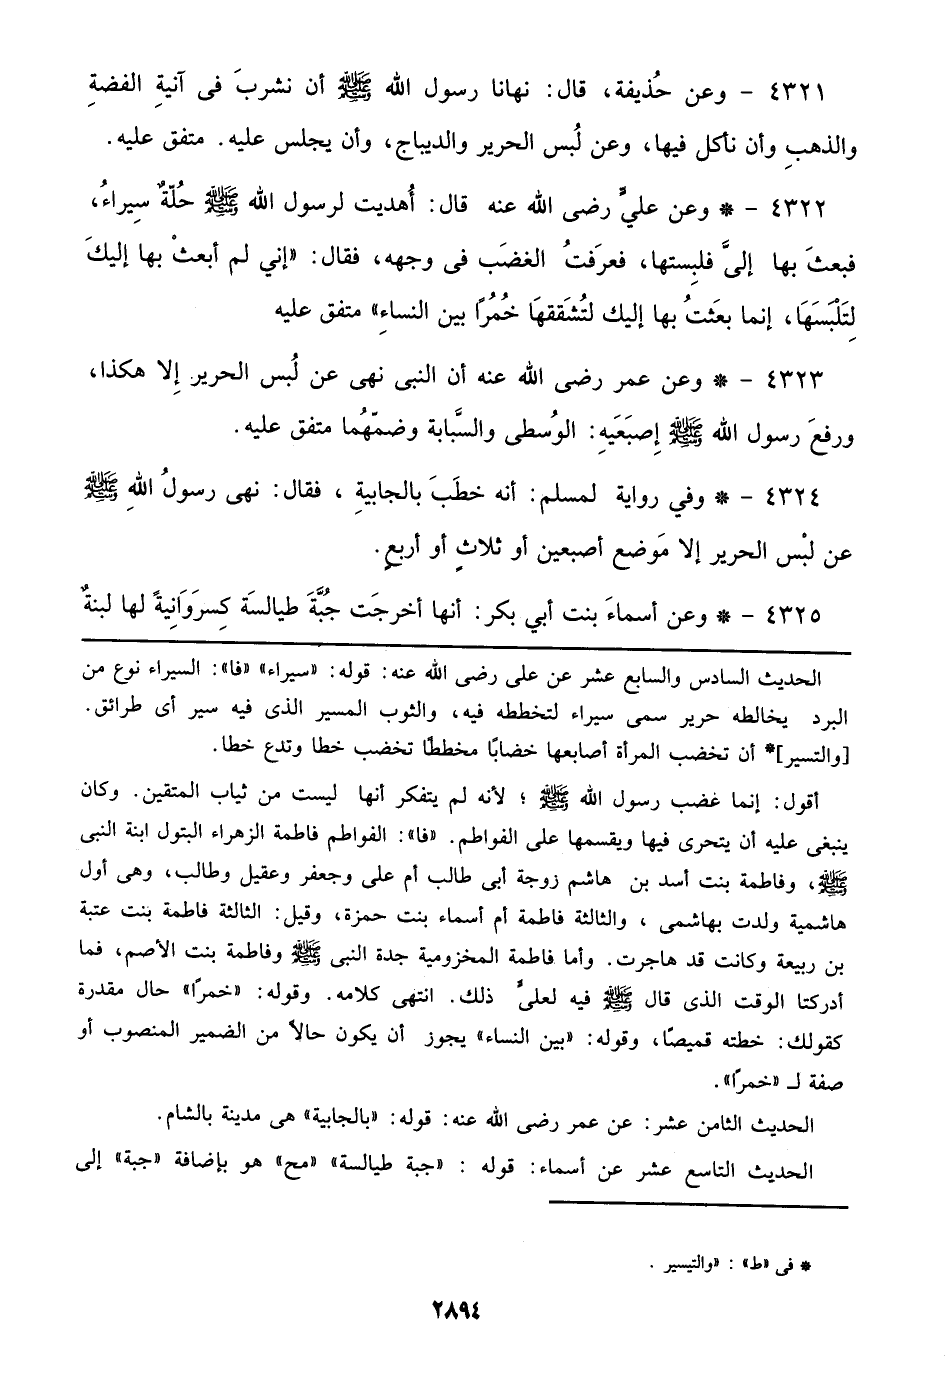 ٤٣٢١ - وعن حُذيفة، قال: نهانا رسول الله ﷺ أن نشربَ فى آنيةِ الفضةِ
والذهبِ وأن نأكل فيها، وعن لُبس الحرير والديباج، وأن يجلس عليه. متفق عليه.
٤٣٢٢ - * وعن عليٍّ رضى الله عنه قال: أُهديت لرسول الله ﷺ حُلّةٌ سِيراءُ،
فبعثَ بها إلىَّ فلبِستها، فعرَفتُ الغضَب فى وجهه، فقال: «إني لم أبعثْ بها إليكَ
لِتَلْبَسَهَا، إنما بعَثتُ بها إليك لتُشَققهَا خُمُرًا بين النساءِ» متفق عليه
٤٣٢٣ - * وعن عمر رضى الله عنه أن النبى نهى عن لُبس الحرير إلا هكذا،
ورفعَ رسول الله ﷺ إصبَعَيهِ: الوُسطى والسَّبابة وضمّهُما متفق عليه.
٤٣٢٤ - * وفي رواية لمسلم: أنه خطَبَ بالجابيةِ ، فقال: نهى رسولُ اللهِ ﷺ
عن لبْس الحرير إلا مَوضع أصبعين أو ثلاثٍ أو أربعٍ.
٤٣٢٥ - * وعن أسماءَ بنت أبي بكر: أنها أخرجَت جُبَّةَ طيالسَة كِسرَوَانِيةً لها لبنةٌ
الحديث السادس والسابع عشر عن على رضى الله عنه: قوله: «سيراء» «فا»: السيراء نوع من
البرد يخالطه حرير سمى سيراء لتخططه فيه، والثوب المسير الذى فيه سير أى طرائق.
[والتسير]* أن تخضب المرأة أصابعها خضابًا مخططًا تخضب خطا وتدع خطا.
أقول: إنما غضب رسول الله ﷺ ؛ لأنه لم يتفكر أنها ليست من ثياب المتقين. وكان
ينبغى عليه أن يتحرى فيها ويقسمها على الفواطم. «فا»: الفواطم فاطمة الزهراء البتول ابنة النبى
ﷺ، وفاطمة بنت أسد بن هاشم زوجة أبى طالب أم على وجعفر وعقيل وطالب، وهى أول
هاشمية ولدت بهاشمى ، والثالثة فاطمة أم أسماء بنت حمزة، وقيل: الثالثة فاطمة بنت عتبة
بن ربيعة وكانت قد هاجرت. وأما فاطمة المخزومية جدة النبى ﷺ وفاطمة بنت الأصم، فما
أدركتا الوقت الذى قال ﷺ فيه لعلىٍّ ذلك. انتهى كلامه. وقوله: «خمرًا» حال مقدرة
كقولك: خطته قميصًا، وقوله: «بين النساء» يجوز أن يكون حالاً من الضمير المنصوب أو
صفة لـ «خمرًا».
الحديث الثامن عشر: عن عمر رضى الله عنه: قوله: «بالجابية» هى مدينة بالشام.
الحديث التاسع عشر عن أسماء: قوله : «جبة طيالسة» «مح» هو بإضافة «جبة» إلى
* فى «ط» : «والتيسير .
٢٨٩٤